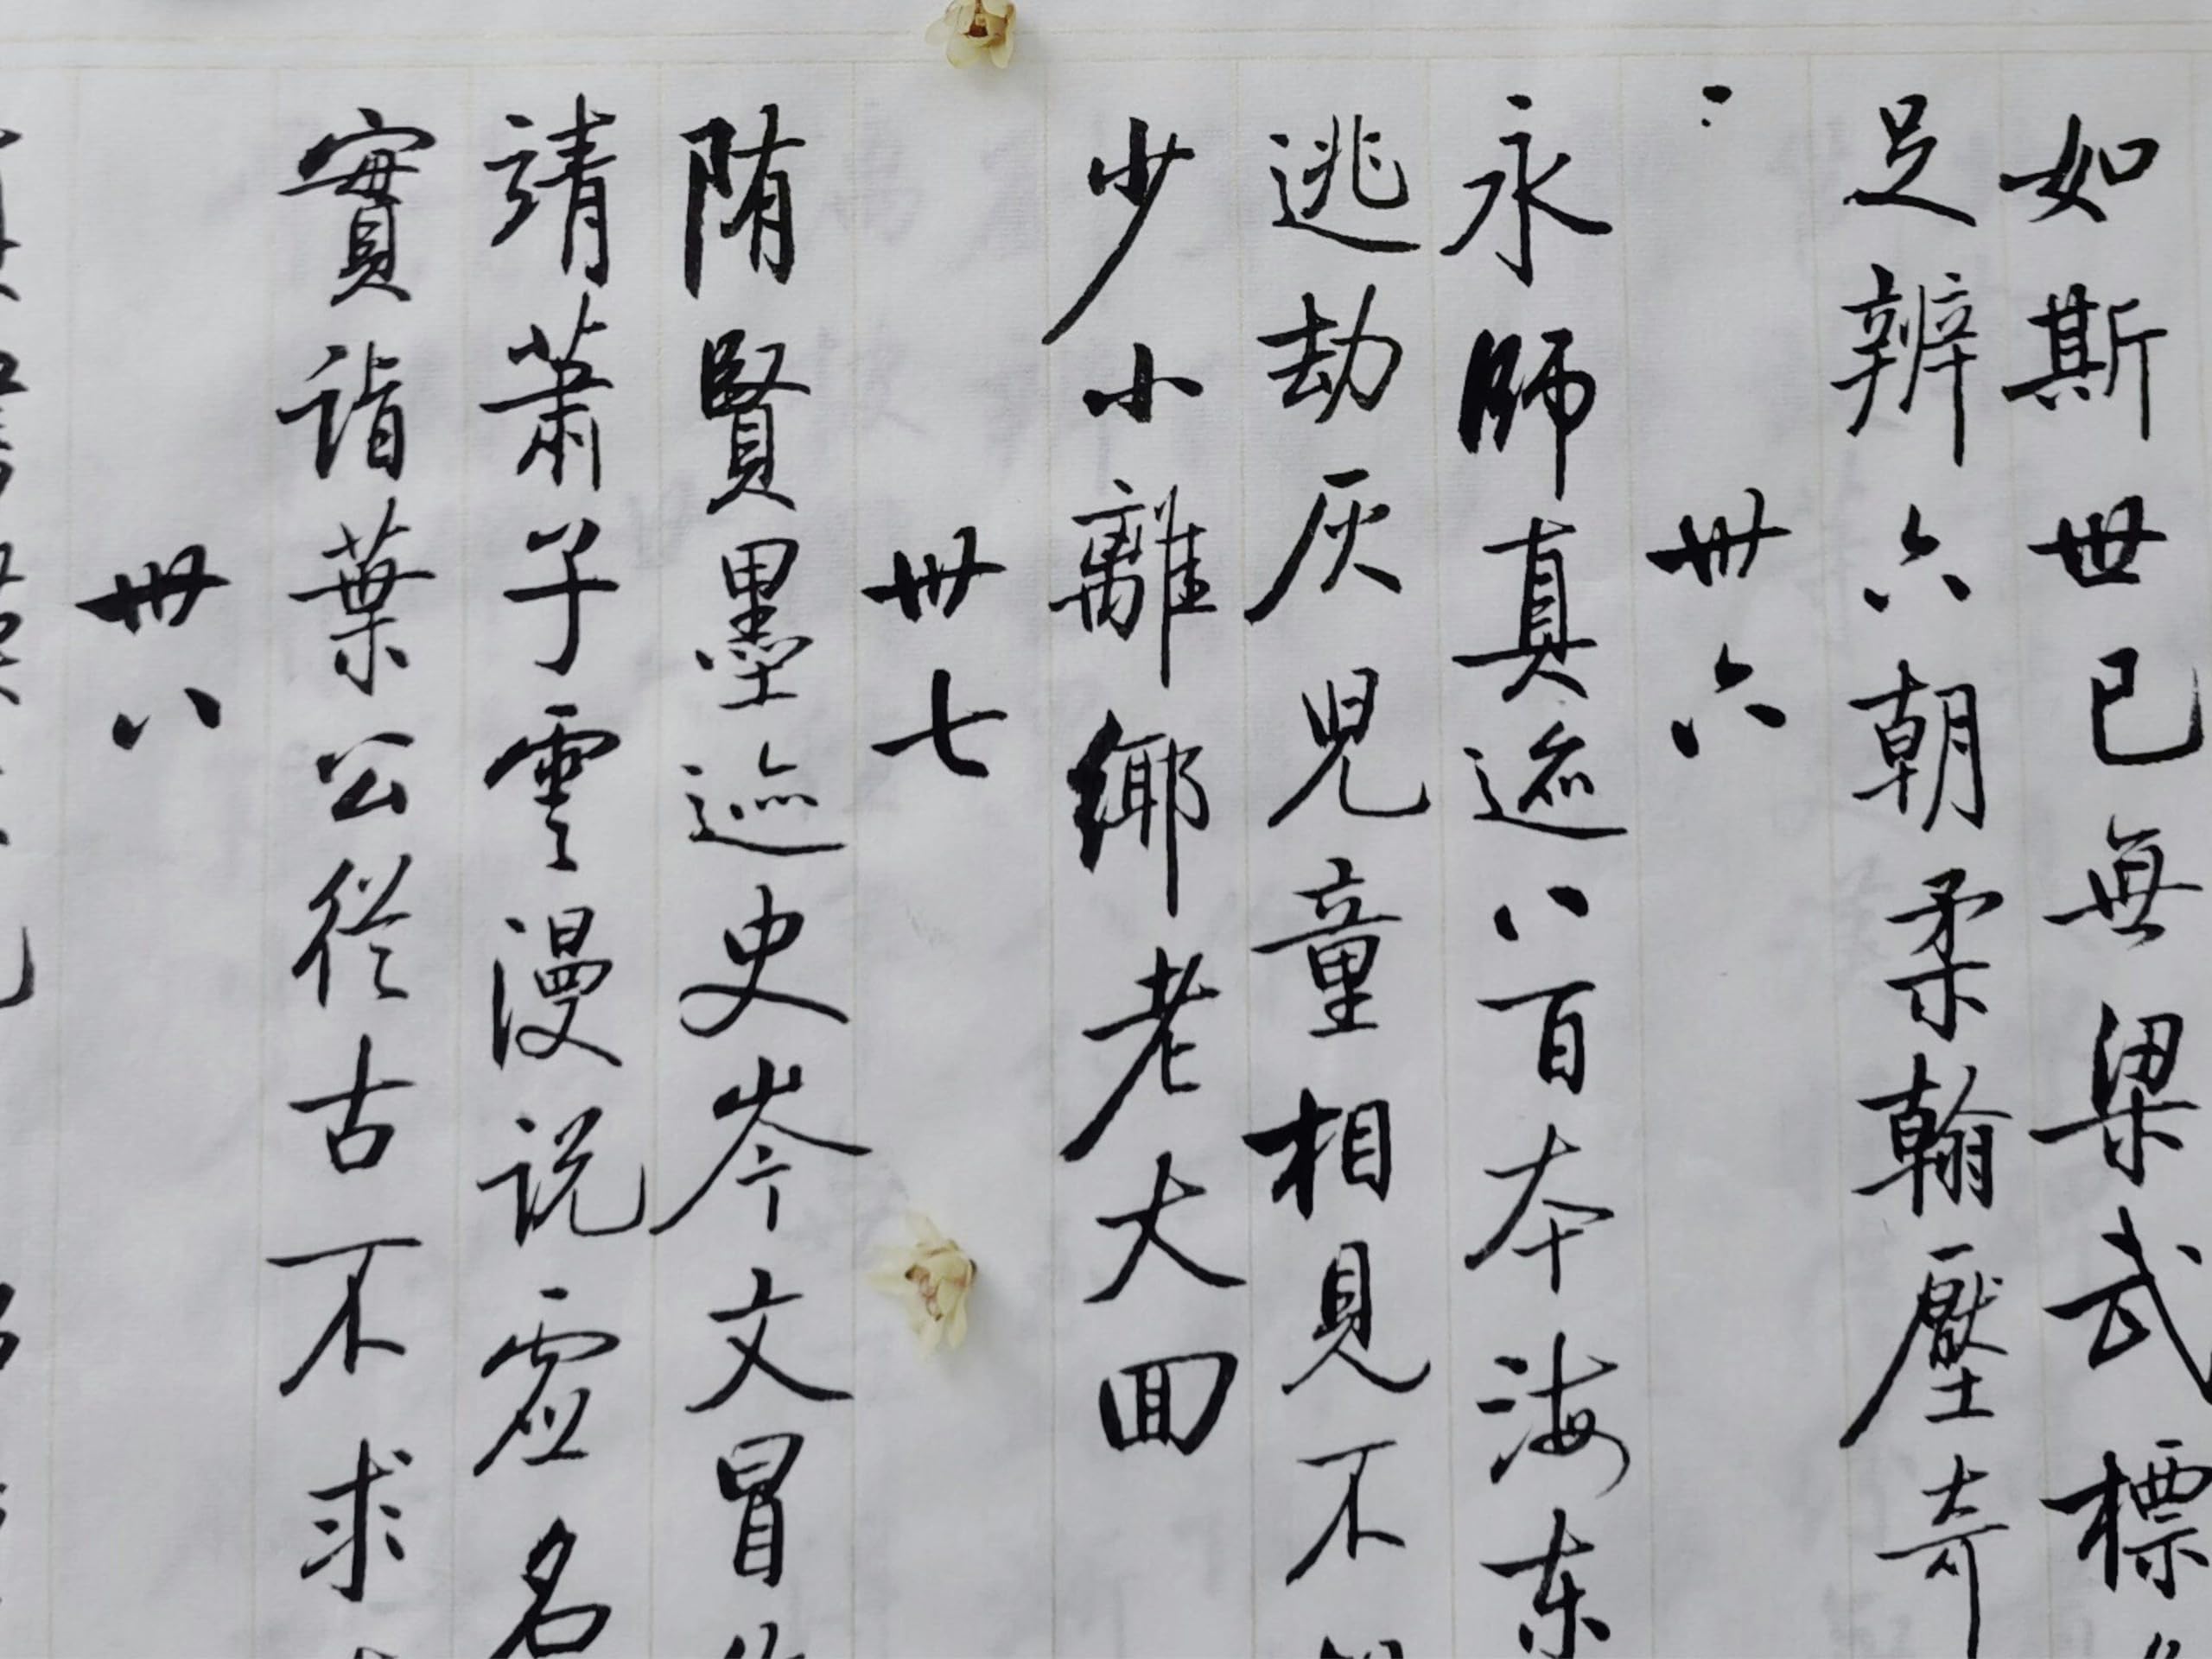 如斯世已無梁武標
足辨六朝柔翰壓奇
卅六
永師真迹八百本海東
逃劫灰兒童相見不
少小離鄉老大回
卅七
隋賢墨迹史岑文冒
靖蕭子雲漫說虛名
實詣葉公從古不求
卅八